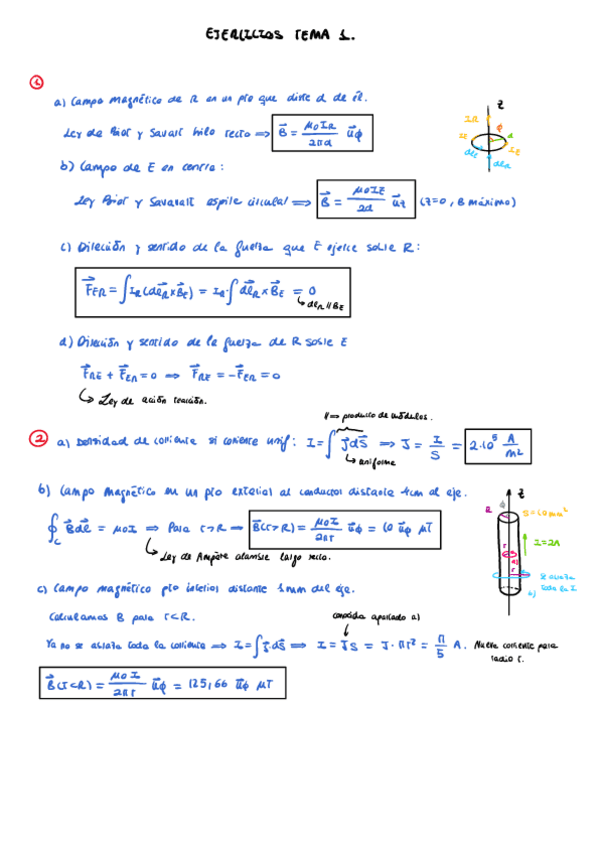 EJERCICIOS TEMA 1.
1
a) Campo magnético de R en un pto que diste d de él.
Ley de Biot y Savart hilo recto ⟹ B⃗ = μ0 IR / 2πd u⃗φ
b) Campo de E en centro:
Ley Biot y Savart espira circular ⟹ B⃗ = μ0 IE / 2d u⃗z (z=0, B máximo)
c) Dirección y sentido de la fuerza que E ejerce sobre R:
F⃗ER = ∫ IR (dl⃗R × B⃗E) = IR · ∫ dl⃗R × B⃗E = 0
↳ dlR ∥ BE
d) Dirección y sentido de la fuerza de R sobre E
F⃗RE + F⃗ER = 0 ⟹ F⃗RE = −F⃗ER = 0
↳ Ley de acción reacción.
∥ ⟹ producto de módulos.
2 a) Densidad de corriente si corriente unif: I = ∫ J⃗ dS⃗ ⟹ J = I / S = 2·10⁵ A / m²
↳ uniforme
b) Campo magnético en un pto exterior al conductor distante 4cm al eje.
∮c B⃗ dl⃗ = μ0 I ⟹ Para r>R ⟹ B⃗(r>R) = μ0 I / 2πr u⃗φ = 10 u⃗φ μT
↳ Ley de Ampère alambre largo recto.
c) Campo magnético pto interior distante 1mm del eje.
Calculamos B para r<R.
conocida apartado a)
Ya no se abraza toda la corriente ⟹ I = ∫ J⃗ · dS⃗ ⟹ I = JS = J · πr² = π / 5 A. Nueva corriente para radio r.
B⃗(r<R) = μ0 I / 2πr u⃗φ = 125,66 u⃗φ μT
z
IR
φ
d
IE
IE
dlE
dlR
z
R
S=10mm²
I=2A
r
r
se abraza
toda la I
b)